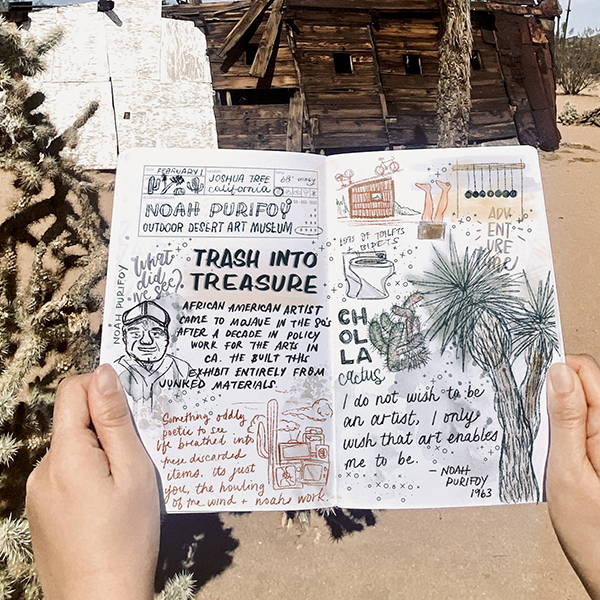 FEBRUARY 1
JOSHUA TREE
california
68° windy
NOAH PURIFOY
OUTDOOR DESERT ART MUSEUM
What
did
we see?
NOAH PURIFOY
TRASH INTO
TREASURE
AFRICAN AMERICAN ARTIST
CAME TO MOJAVE IN THE 80's
AFTER A DECADE IN POLICY
WORK FOR THE ARTS IN
CA. HE BUILT THIS
EXHIBIT ENTIRELY FROM
JUNKED MATERIALS.
Something oddly
poetic to see
life breathed into
these discarded
items. its just
you, the howling
of the wind + noahs work.
ADV
ENT
URE
TIME!
LOTS OF TOILETS
BIDETS
CH
OL
LA
cactus
I do not wish to be
an artist, I only
wish that art enables
me to be.
- NOAH
PURIFOY
1963